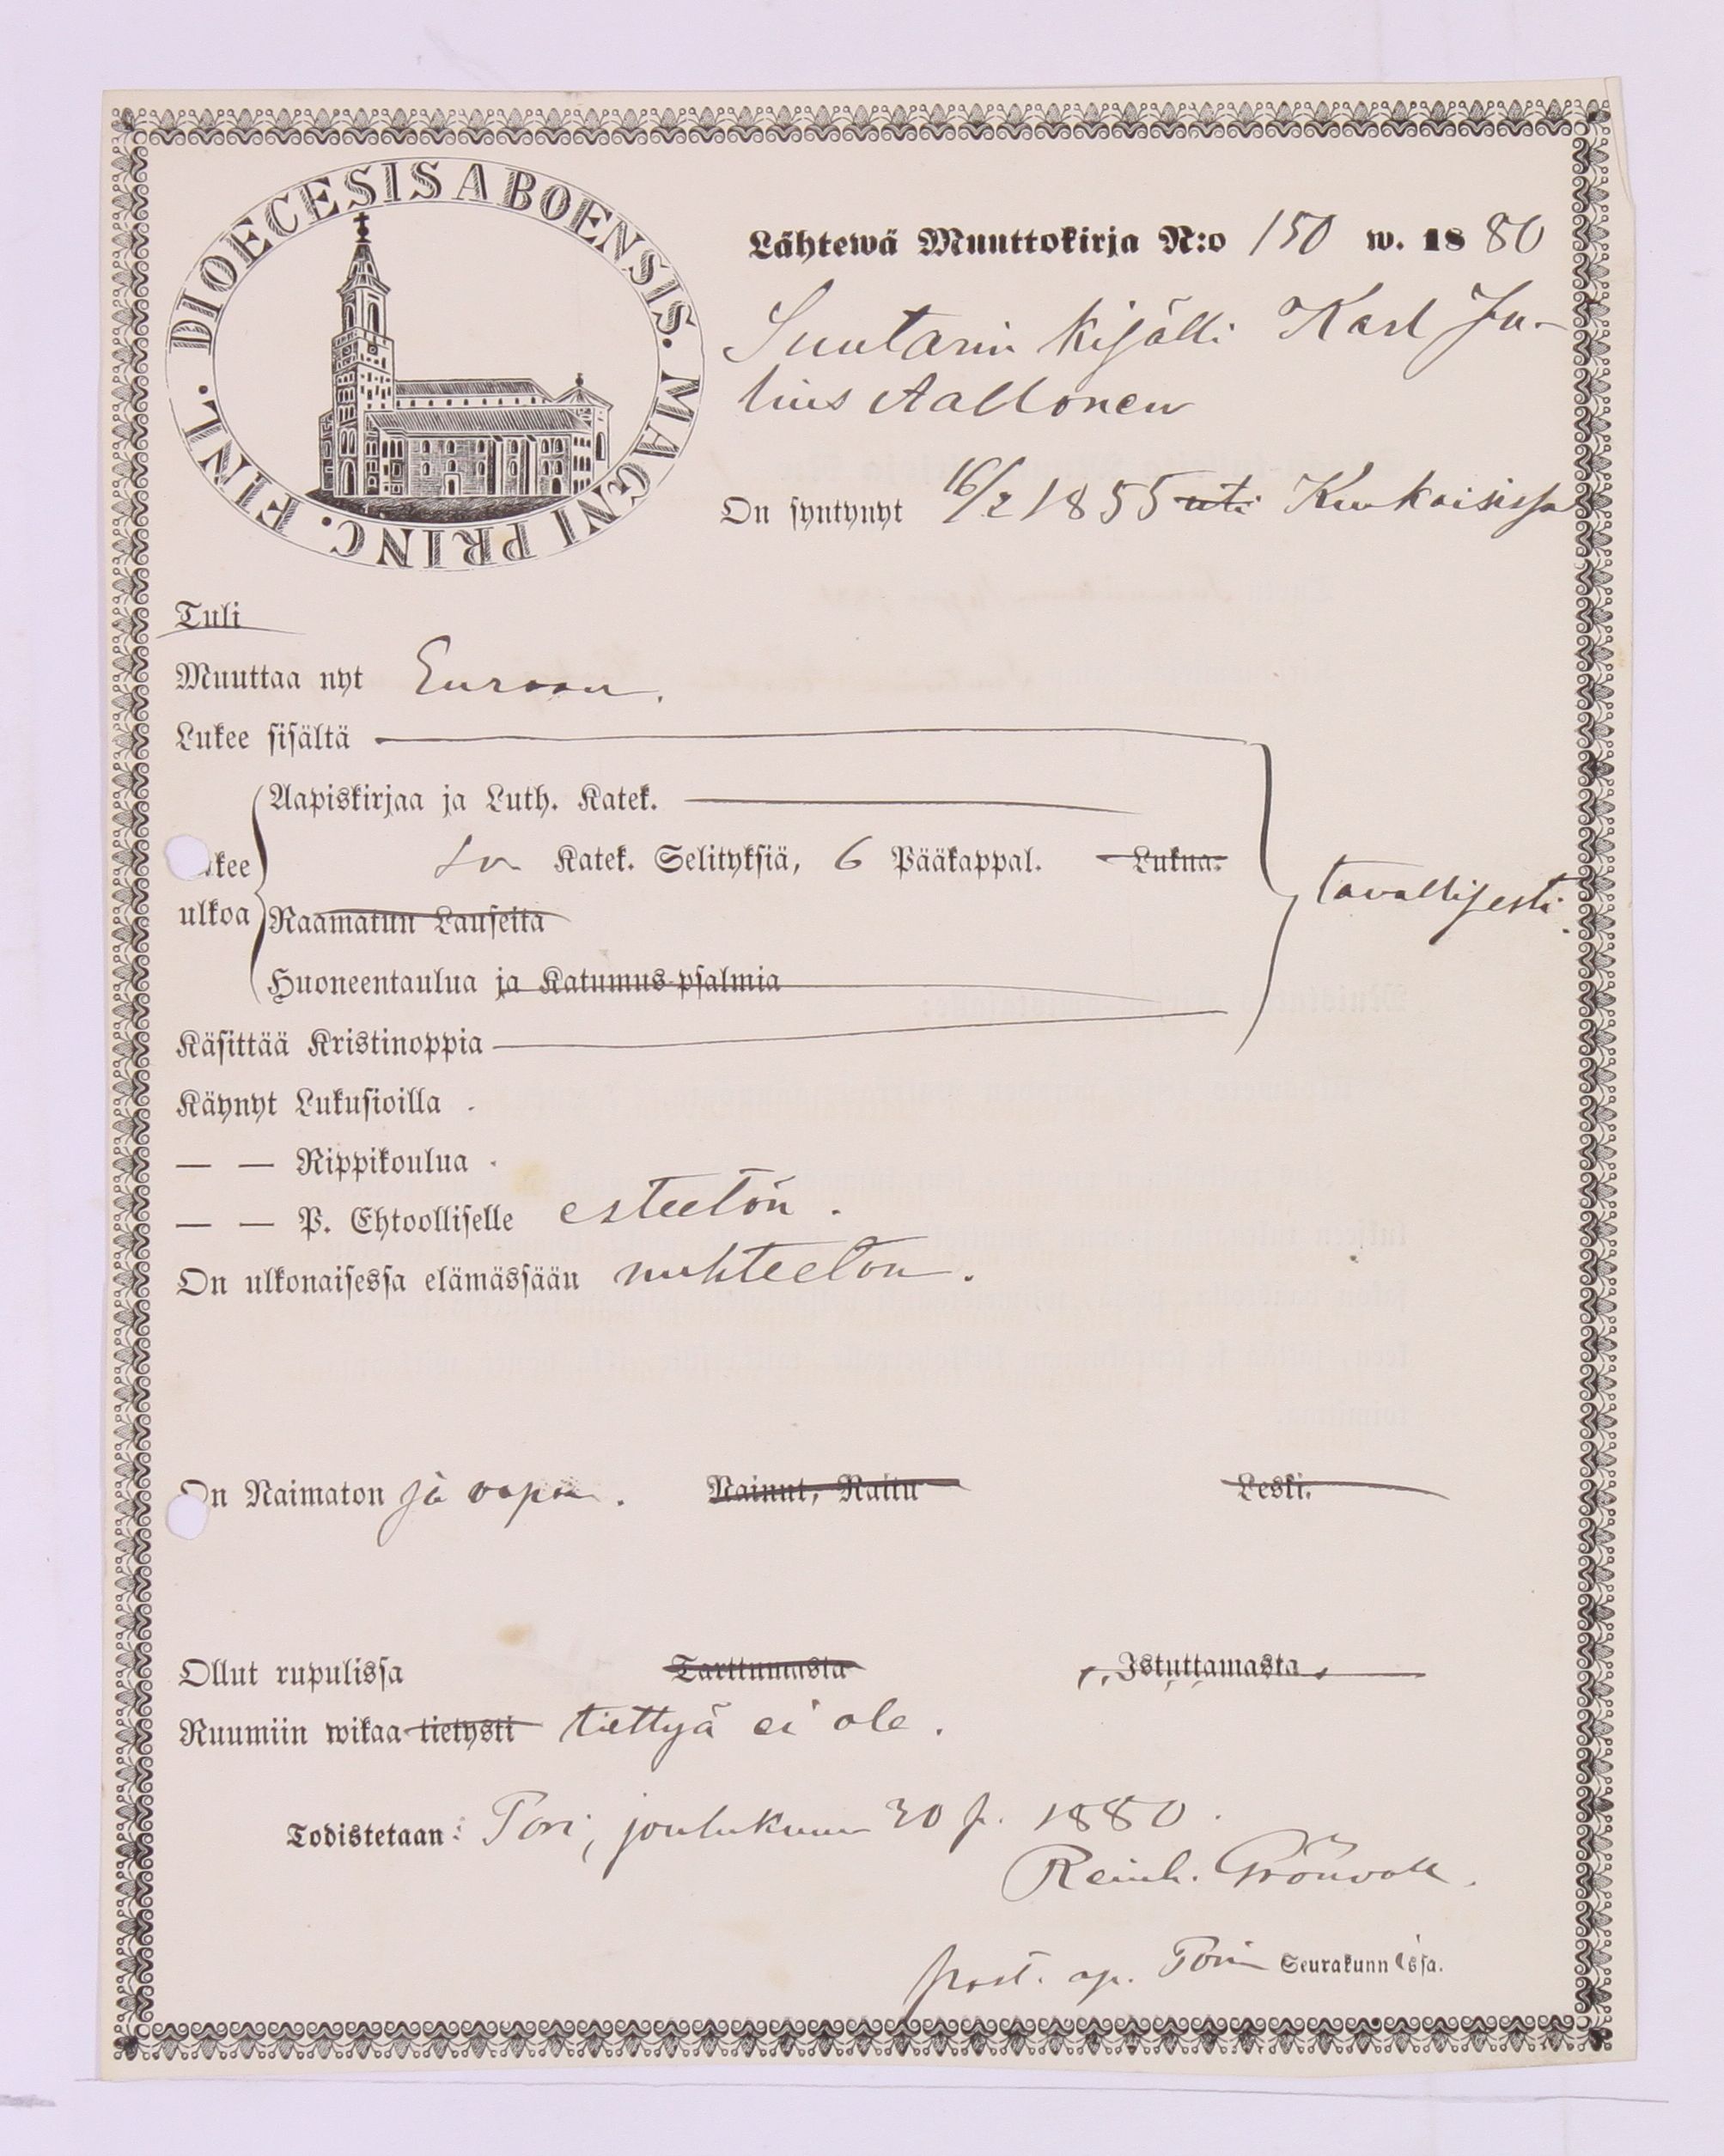 DIOECESIS ABOENSIS. MAGNI PRINC. FINL.
Lähtewä Muuttokirja N:o 150 w. 1880
Suutarin kisälli Karl Ju-
lius Aaltonen
On syntynyt 16/2 1855 uti Keukaisissa
Tuli
Muuttaa nyt Euraan.
Lukee sisältä
Aapiskirjaa ja Luth. Katek.
kee Katek. Selityksiä, 6 Pääkappal. Lukua.
tavallisesti.
ulkoa Raamatun Lauseita
Huoneentaulua ja Katumus-psalmia
Käsittää Kristinoppia
Käynyt Lukusioilla
— — Rippikoulua
— — P. Ehtoolliselle esteetön.
On ulkonaisessa elämässään nuhteeton.
On Naimaton ja vapaa. Nainut, Raitu Leski.
Ollut rupulissa Tarttumasta Istuttamasta
Ruumiin wikaa tietysti tiettyä ei ole.
Todistetaan: Pori, joulukuun 30 p. 1880.
Reinh. Grönvall.
past. ap. Porin Seurakunnissa.